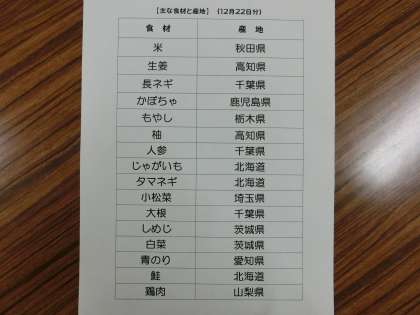 【主な食材と産地】 (12月22日分)
食 材 産 地
米 秋田県
生姜 高知県
長ネギ 千葉県
かぼちゃ 鹿児島県
もやし 栃木県
柚 高知県
人参 千葉県
じゃがいも 北海道
タマネギ 北海道
小松菜 埼玉県
大根 千葉県
しめじ 茨城県
白菜 茨城県
青のり 愛知県
鮭 北海道
鶏肉 山梨県